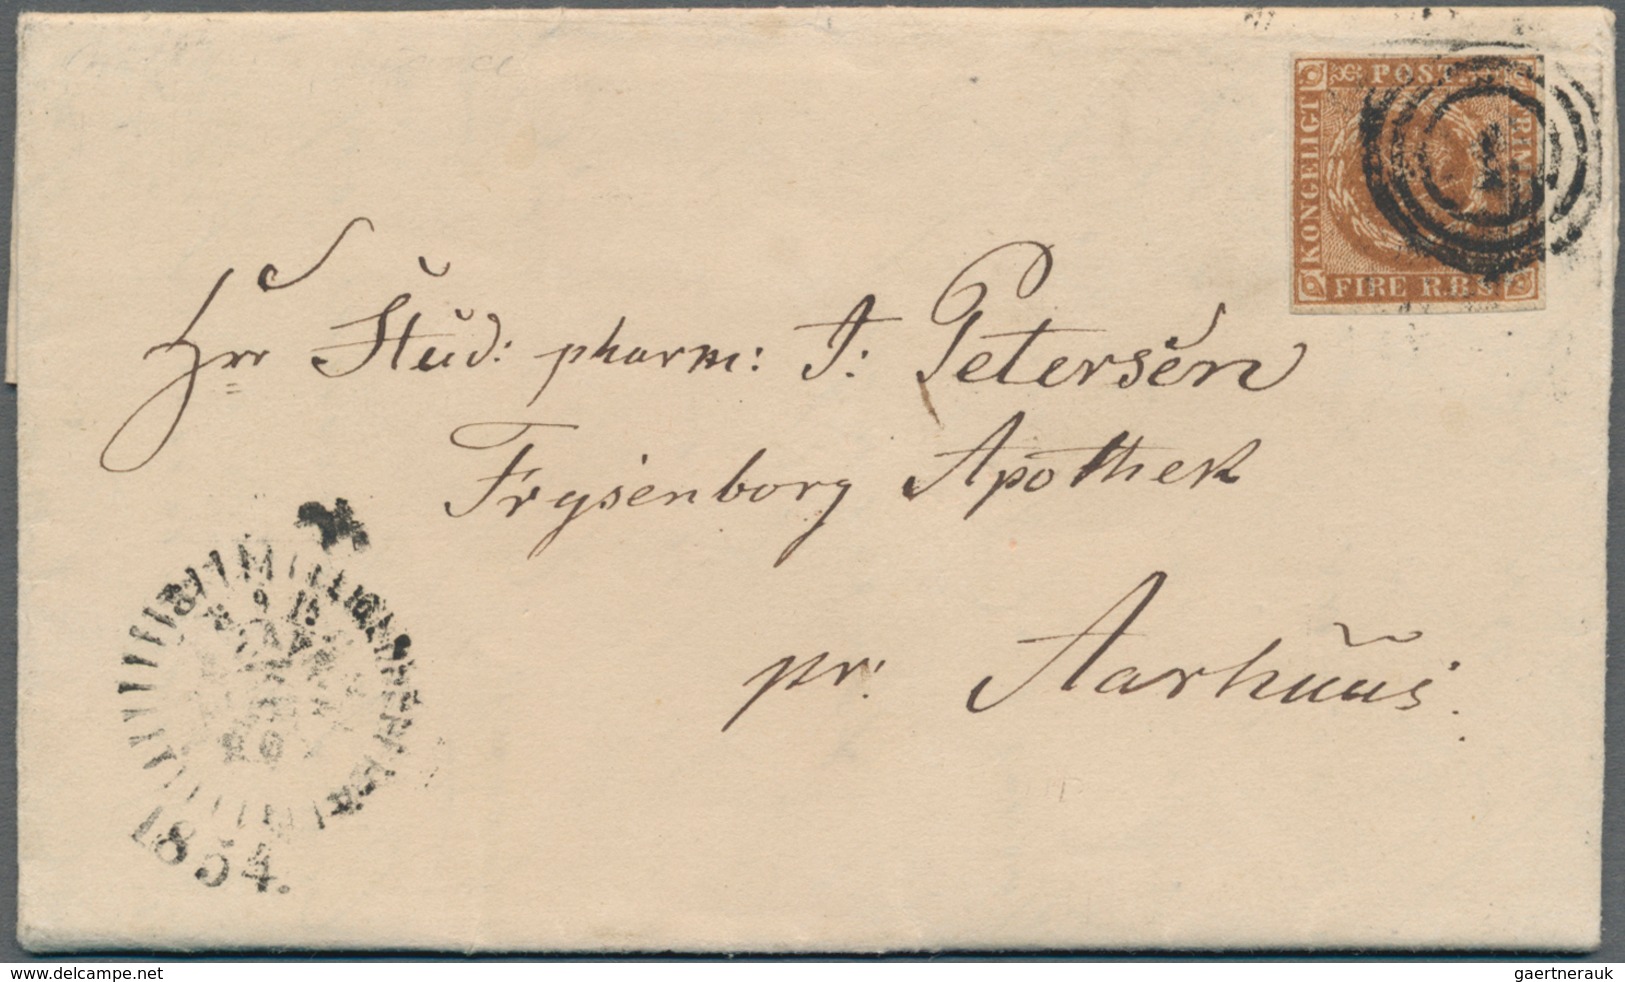 KONGELIGT
POST
FIRE R.B.S
1
Hrr Stud: pharm: J: Petersen
Frysenborg Apothek
pr: Aarhuus.
1854.
www.delcampe.net
gaertnerauk